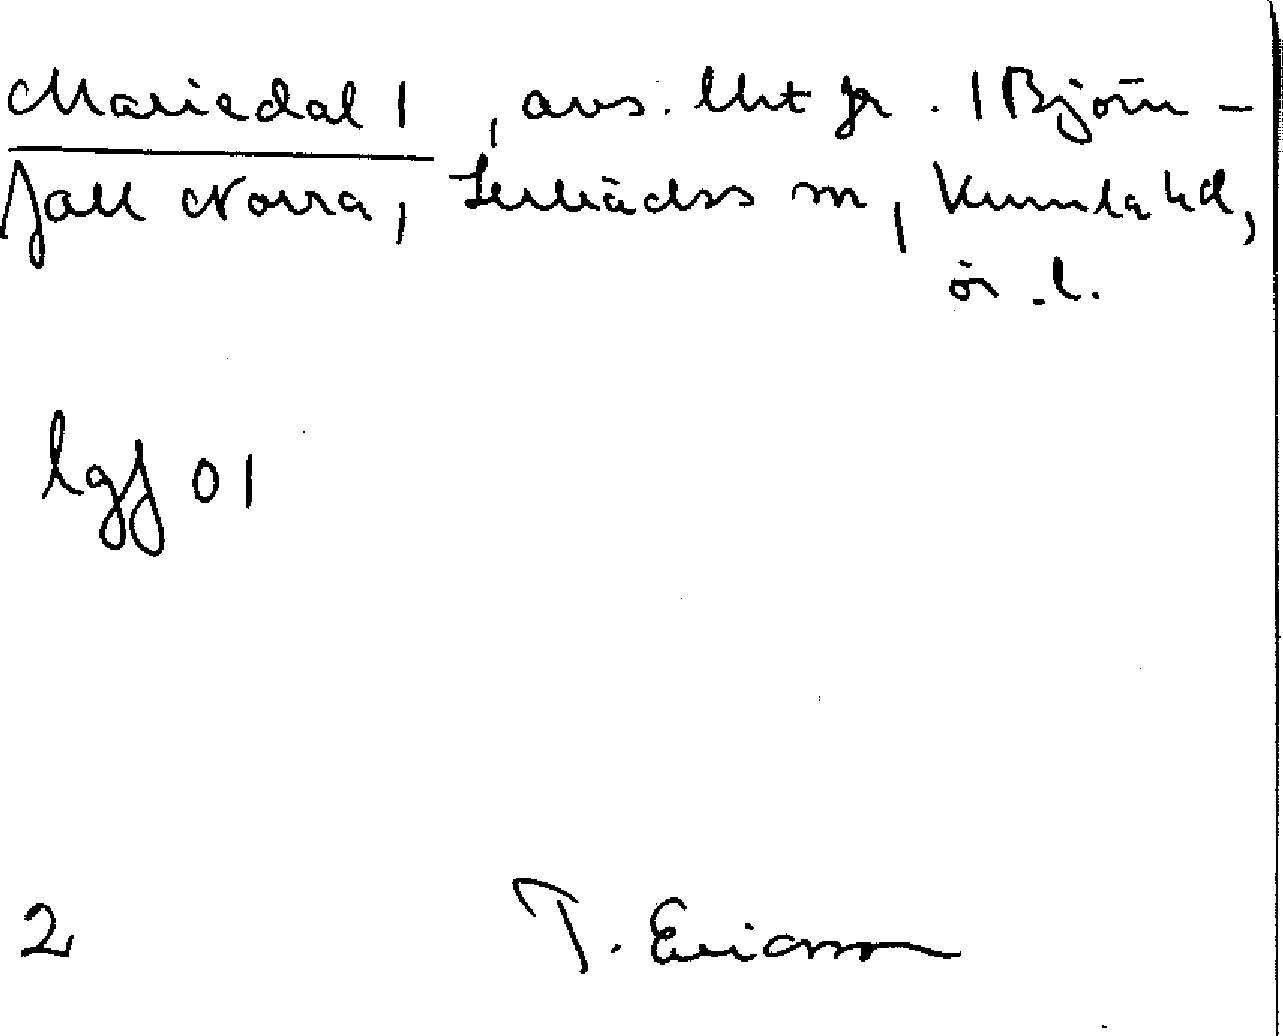 Mariedal 1, avs. lht fr. 1 Björn-
fall Norra, Lerbäcks sn, Kumla hd,
ör.l.
lgf 01
2 T. Ericsson